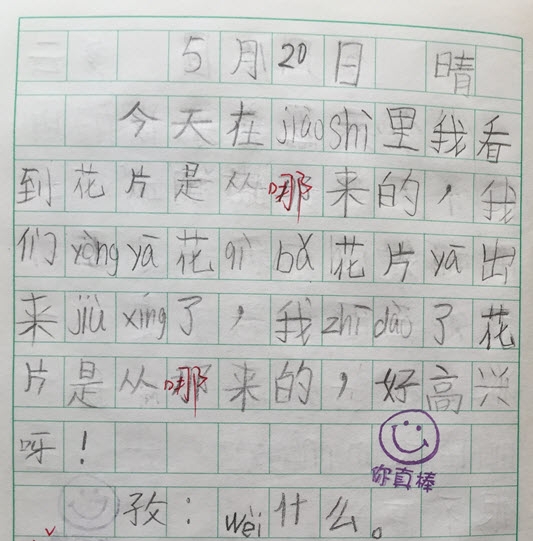 5月20日 晴
今天在jiào shì里我看
到花片是从哪来的，我
们yòng yā花qì bǎ花片yā出
来jiù xíng了，我zhī dào了花
片是从哪来的，好高兴
呀！
你真棒
孜：wèi什么。